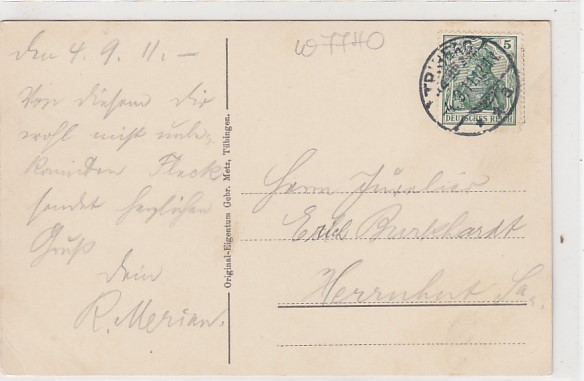 den 4. 9. 11. –
Von diesem Dir
wohl nicht unbe-
kannten Fleck
sendet herzlichen
Gruß
Dein
R. Merian.
W7740
Original-Eigentum Gebr. Metz, Tübingen.
TRIBERG
5
DEUTSCHES REICH
Herrn Juvelier
Emil Burkhardt
Herrnhut Sa.